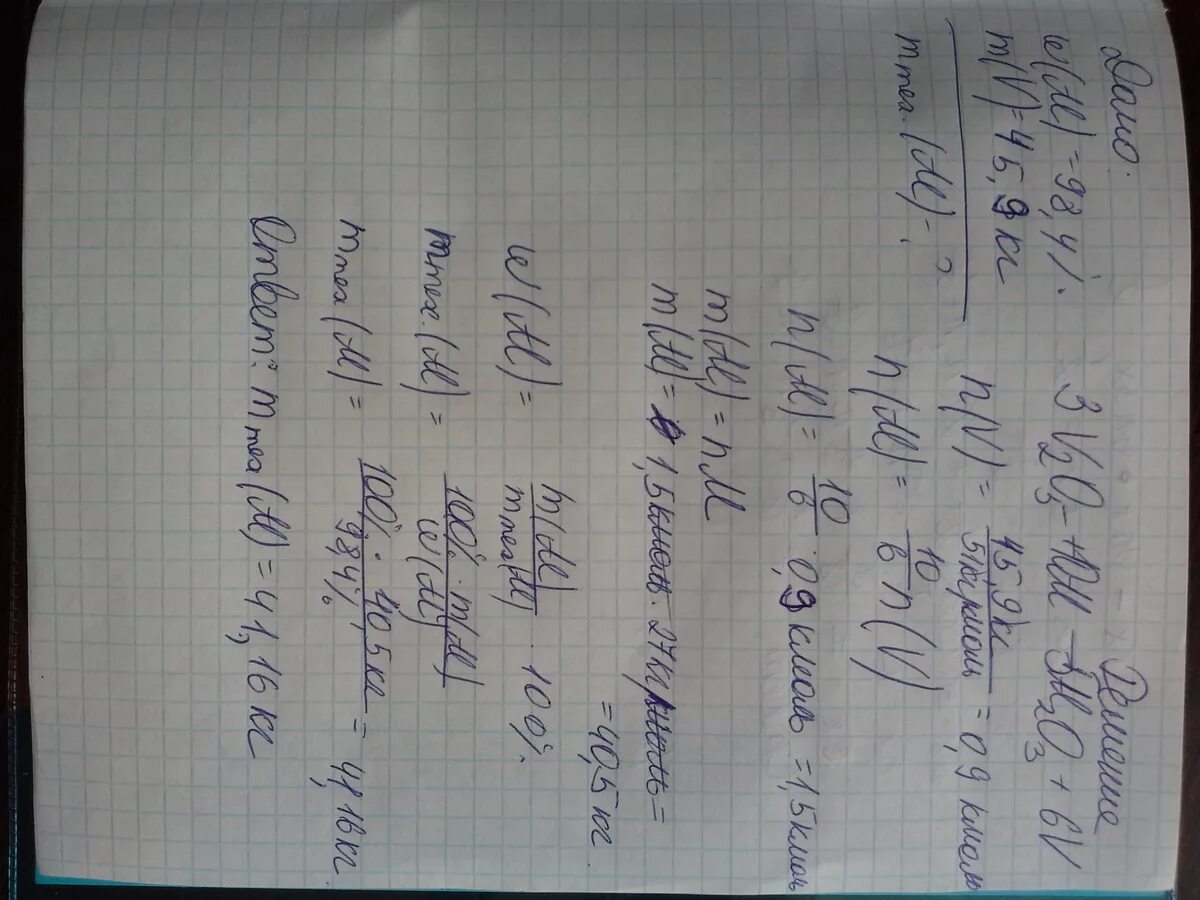 Дано:
Решение
w(Al) = 98,4%.
m(V) = 45,9 кг
m тех. (Al) - ?
3V2O5 + 10Al → 5Al2O3 + 6V
n(V) = 45,9кг / 51кг/моль = 0,9 кмоль
n(Al) = 10/6 n(V)
n(Al) = 10/6 · 0,9 кмоль = 1,5 кмоль
m(Al) = nM
m(Al) = 1,5 кмоль · 27кг/кмоль =
= 40,5 кг.
w(Al) = m(Al) / m тех(Al) · 100%.
m тех. (Al) = 100% · m(Al) / w(Al)
m тех (Al) = 100% · 40,5кг / 98,4% = 41,16 кг.
Ответ: m тех (Al) = 41,16 кг